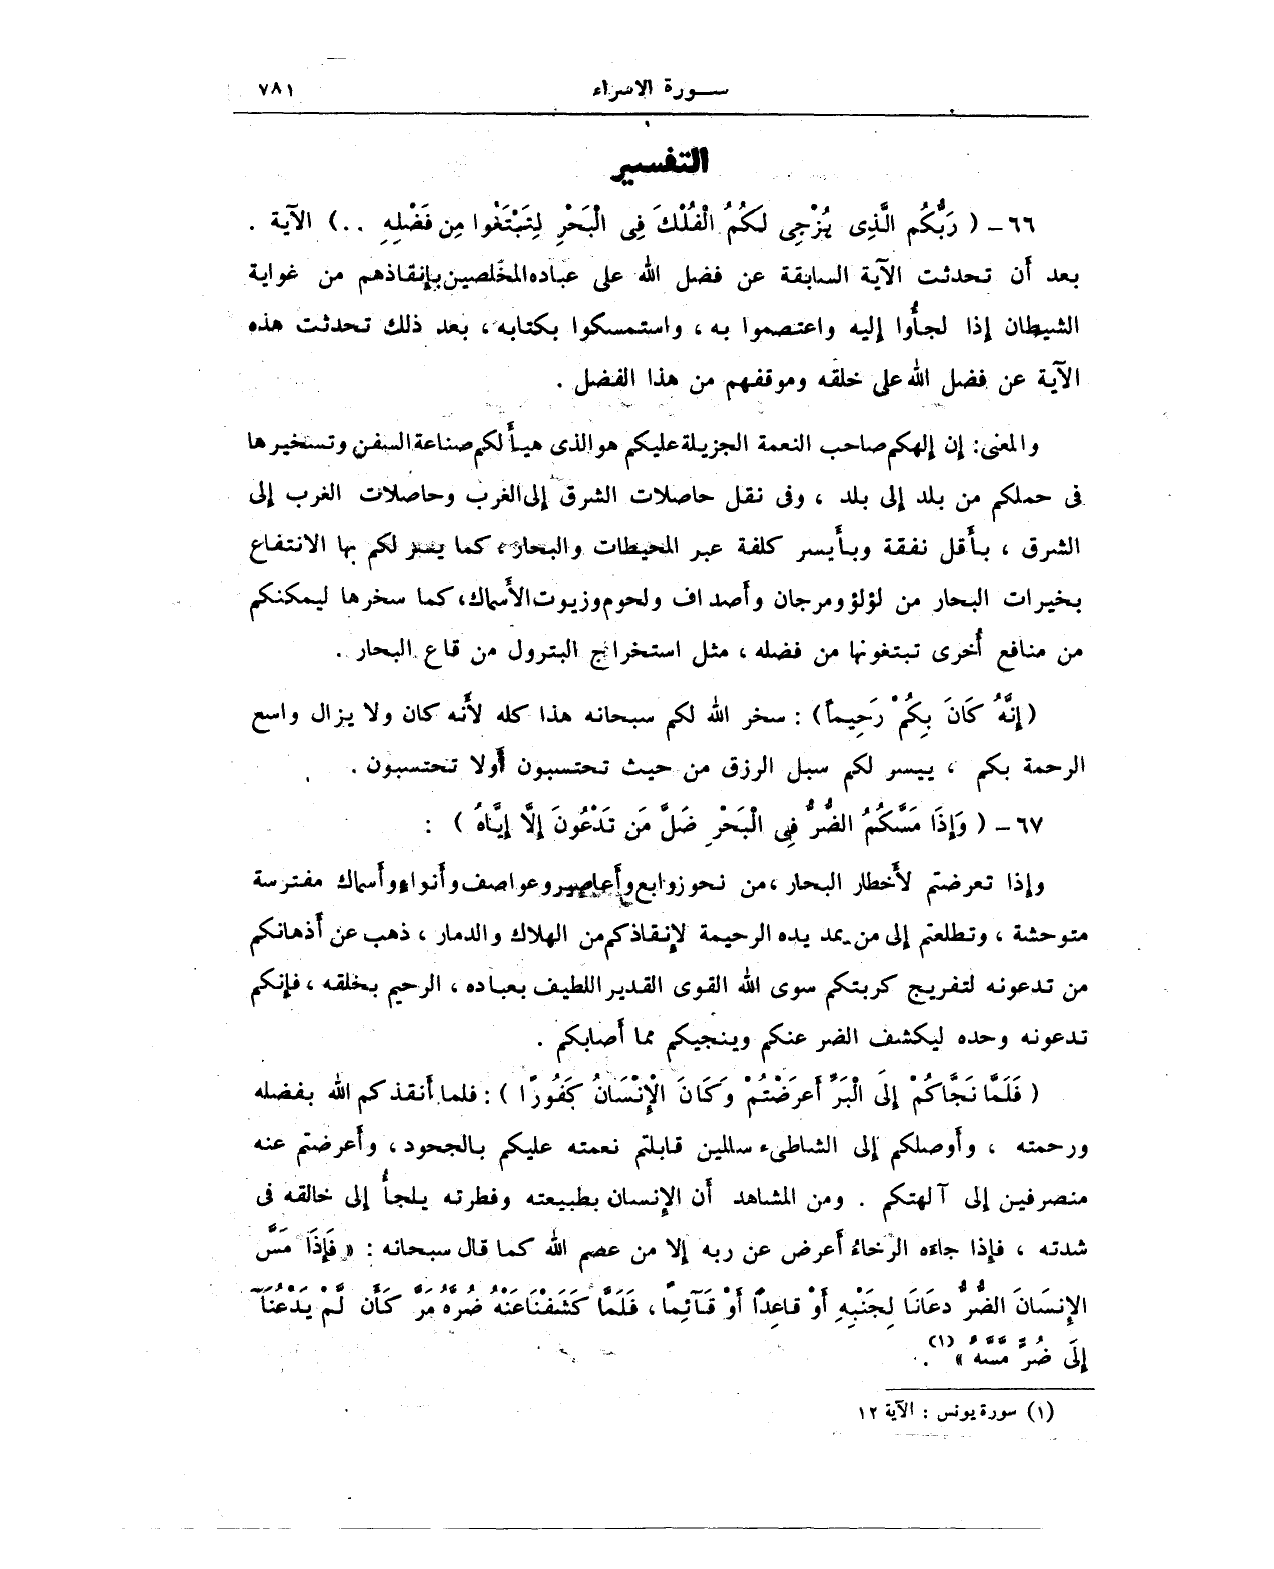 سورة الاسراء ٧٨١
التفسير
٦٦ – ( رَبُّكُم الَّذِى يُزْجِى لَكُمُ الْفُلْكَ فِى الْبَحْرِ لِتَبْتَغُوا مِن فَضْلِهِ ..) الآية .
بعد أَن تحدثت الآية السابقة عن فضل الله على عباده المخلصين بإنقاذهم من غواية
الشيطان إذا لجأُوا إليه واعتصموا به ، واستمسكوا بكتابه ، بعد ذلك تحدثت هذه
الآية عن فضل الله على خلقه وموقفهم من هذا الفضل .
والمعنى : إن إلهكم صاحب النعمة الجزيلة عليكم هو الذى هيأ لكم صناعة السفن وتسخيرها
فى حملكم من بلد إلى بلد ، وفى نقل حاصلات الشرق إلى الغرب وحاصلات الغرب إلى
الشرق ، بأَقل نفقة وبأَيسر كلفة عبر المحيطات والبحار ، كما يسر لكم بها الانتفاع
بخيرات البحار من لؤلؤ ومرجان وأَصداف ولحوم وزيوت الأَسماك ، كما سخرها ليمكنكم
من منافع أُخرى تبتغونها من فضله ، مثل استخراج البترول من قاع البحار .
(إِنَّهُ كَانَ بِكُمْ رَحِيماً) : سخر الله لكم سبحانه هذا كله لأَنه كان ولا يزال واسع
الرحمة بكم ، ييسر لكم سبل الرزق من حيث تحتسبون أَولا تحتسبون .
٦٧ – ( وَإِذَا مَسَّكُمُ الضُّرُّ فِى الْبَحْرِ ضَلَّ مَن تَدْعُونَ إِلَّا إِيَّاهُ ) :
وإذا تعرضتم لأَخطار البحار ، من نحو زوابع وأَعاصير وعواصف وأَنواء وأَسماك مفترسة
متوحشة ، وتطلعتم إلى من يمد يده الرحيمة لإِنقاذكم من الهلاك والدمار ، ذهب عن أَذهانكم
من تدعونه لتفريج كربتكم سوى الله القوى القدير اللطيف بعباده ، الرحيم بخلقه ، فإنكم
تدعونه وحده ليكشف الضر عنكم وينجيكم مما أَصابكم .
( فَلَمَّا نَجَّاكُمْ إِلَى الْبَرِّ أَعرَضْتُمْ وَكَانَ الْإِنْسَانُ كَفُورًا ) : فلما أَنقذكم الله بفضله
ورحمته ، وأَوصلكم إلى الشاطىء سالمين قابلتم نعمته عليكم بالجحود ، وأَعرضتم عنه
منصرفين إلى آلهتكم . ومن المشاهد أَن الإنسان بطبيعته وفطرته يلجأُ إلى خالقه فى
شدته ، فإذا جاءه الرخاءُ أَعرض عن ربه إلا من عصم الله كما قال سبحانه : « فَإِذَا مَسَّ
الإِنسَانَ الضُّرُّ دعَانَا لِجَنْبِهِ أَوْ قاعِدًا أَوْ قَآئِمًا ، فَلَمَّا كَشَفْنَا عَنْهُ ضُرَّهُ مَرَّ كَأَن لَّمْ يَدْعُنَآ
إِلَى ضُرٍّ مَّسَّهُ » (١) .
(١) سورة يونس : الآية ١٢